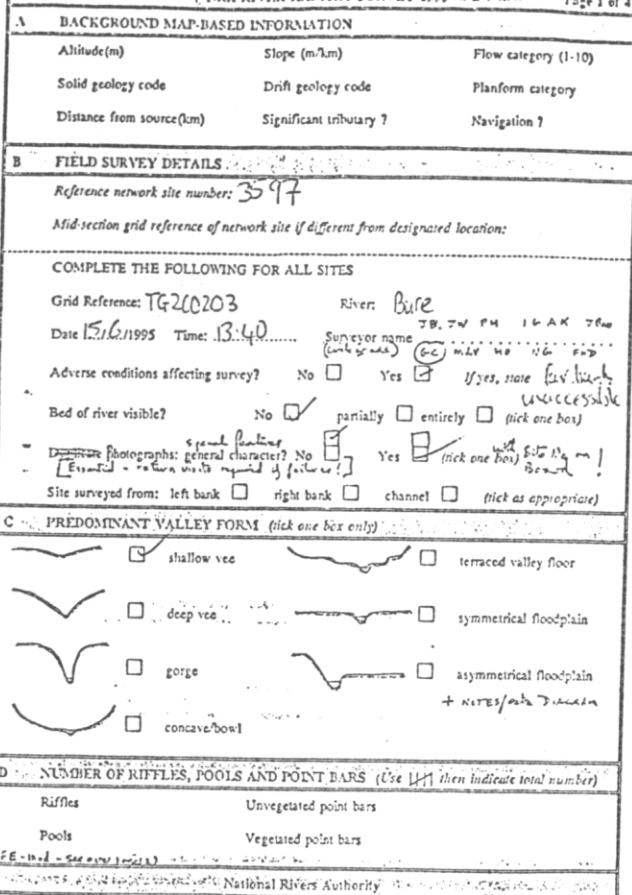 Page 1 of 4
A BACKGROUND MAP-BASED INFORMATION
Altitude(m) Slope (m/km) Flow category (1-10)
Solid geology code Drift geology code Planform category
Distance from source(km) Significant tributary ? Navigation ?
B FIELD SURVEY DETAILS
Reference network site number: 3597
Mid-section grid reference of network site if different from designated location:
COMPLETE THE FOLLOWING FOR ALL SITES
Grid Reference: TG200203 River: Bure
JB. JW PH IG AK
Date 15/6/1995 Time: 13:40 Surveyor name
GC MLV HO NG
Adverse conditions affecting survey? No Yes If yes, state
Bed of river visible? No partially entirely (tick one box)
special features
photographs: general character? No Yes (tick one box) with Site No on Board !
[Essential - return visits required if failures!]
Site surveyed from: left bank right bank channel (tick as appropriate)
C PREDOMINANT VALLEY FORM (tick one box only)
shallow vee terraced valley floor
deep vee symmetrical floodplain
gorge asymmetrical floodplain
+ NOTES/ DIAGRAM
concave/bowl
D NUMBER OF RIFFLES, POOLS AND POINT BARS (Use then indicate total number)
Riffles Unvegetated point bars
Pools Vegetated point bars
National Rivers Authority